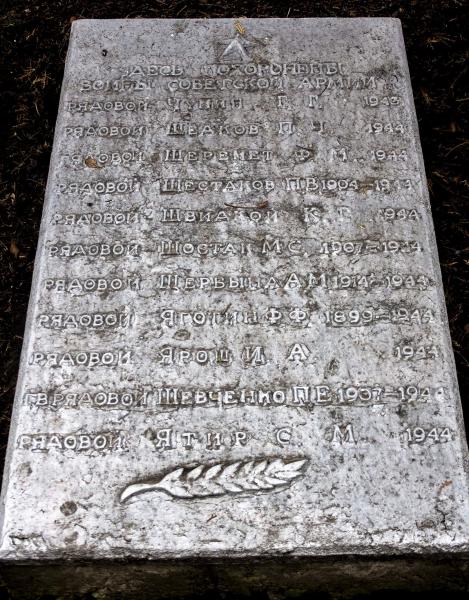 ЗДЕСЬ ПОХОРОНЕНЫ
ВОИНЫ СОВЕТСКОЙ АРМИИ
РЯДОВОЙ ЧУНИН Г. Г. 1943
РЯДОВОЙ ШЕДКОВ П. Ч. 1944
РЯДОВОЙ ШЕРЕМЕТ Ф. М. 1944
РЯДОВОЙ ШЕСТАКОВ П. В. 1904–1944
РЯДОВОЙ К. Г. 1944
РЯДОВОЙ ШОСТАК М. С. 1907–1944
РЯДОВОЙ ЩЕРБЫНА А. М. 1914–1944
РЯДОВОЙ ЯГОТИН Ф. Ф. 1899–1944
РЯДОВОЙ ЯРОЦ И. А. 1944
ГВ. РЯДОВОЙ ШЕВЧЕНКО П. Е. 1907–1944
РЯДОВОЙ ЯТИР С. М. 1944